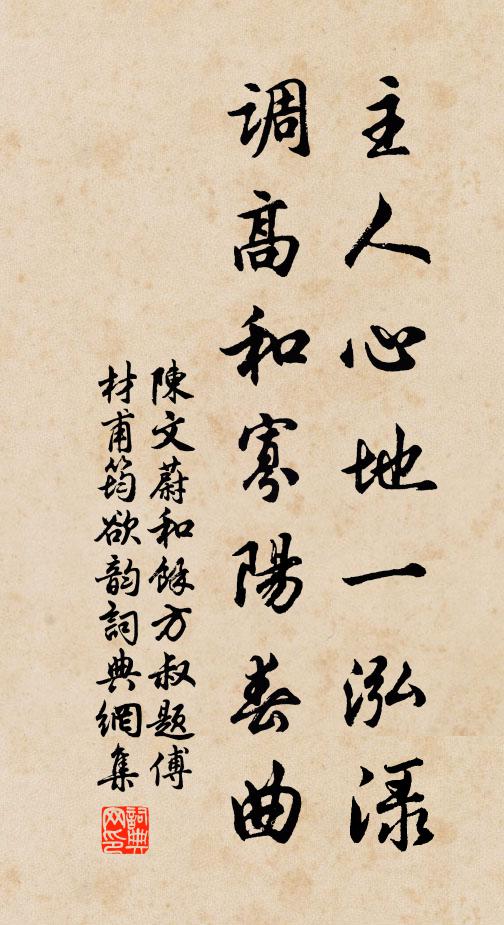 主人心地一泓渌
調高和寡陽春曲
陳文蔚和餘方叔题傅
材甫筠欲韵詞典網集
詞典网印